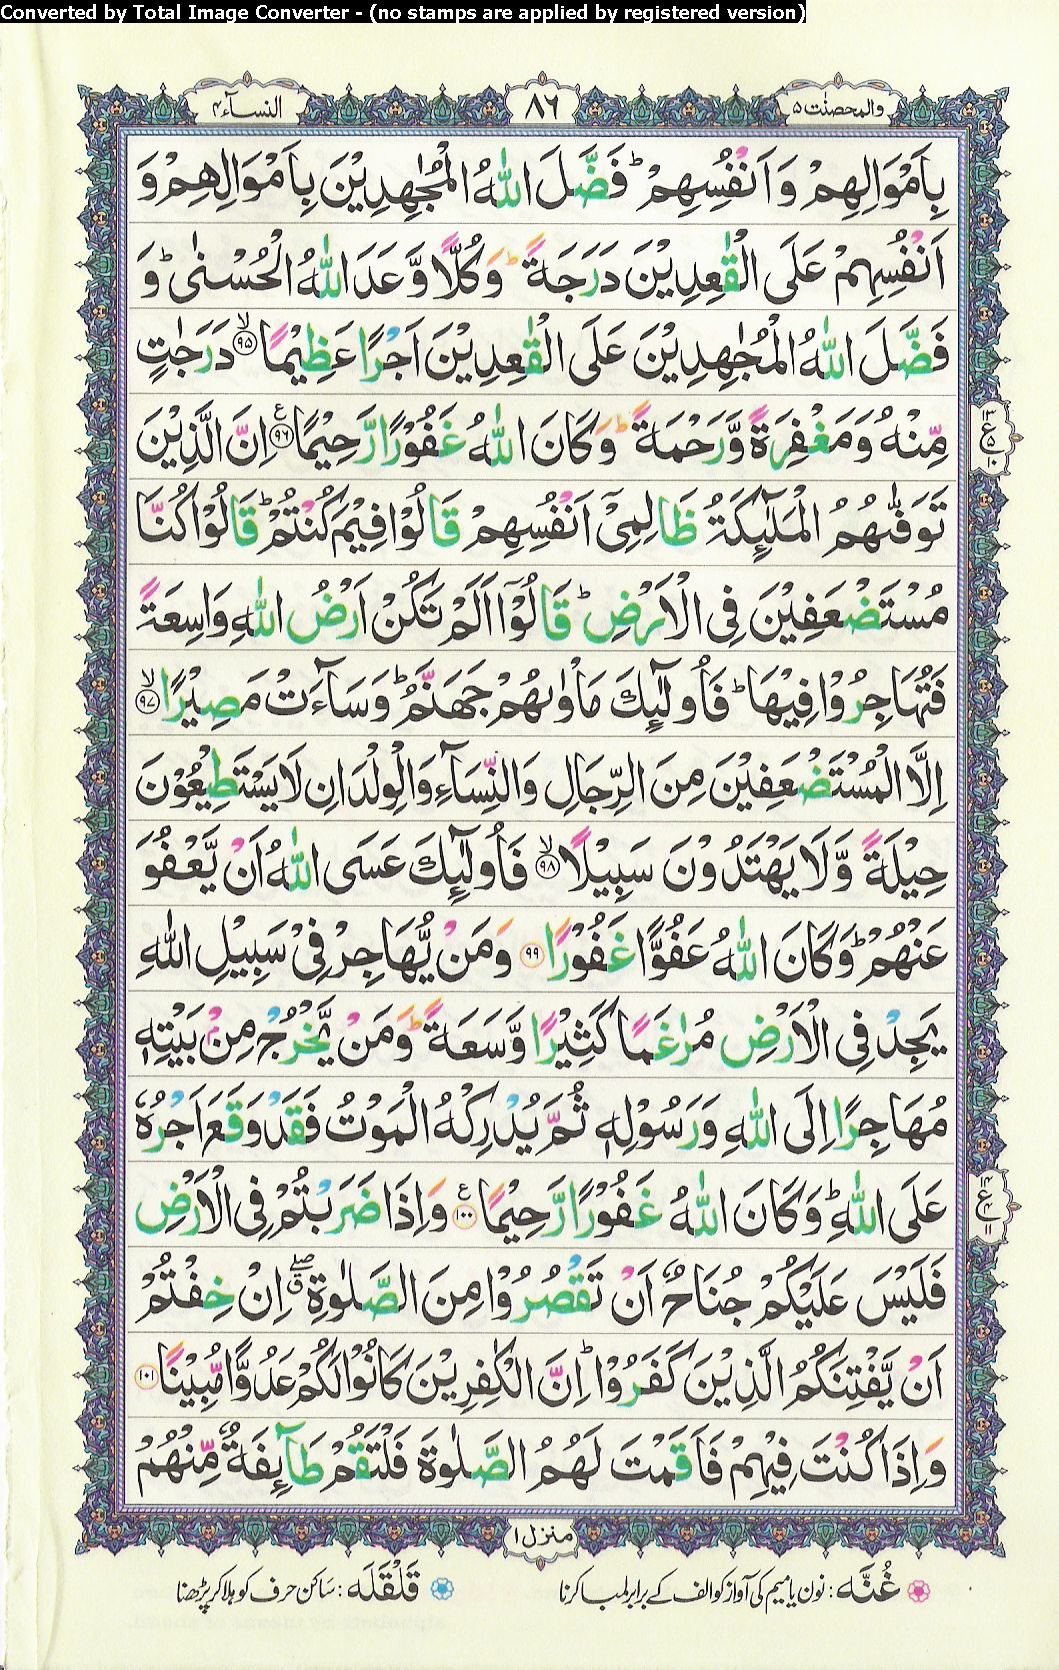 Converted by Total Image Converter - (no stamps are applied by registered version)
والمحصنت ۵
۸۶
النسآء ۴
بِاَمْوَالِهِمْ وَاَنْفُسِهِمْ ؕ فَضَّلَ اللّٰهُ الْمُجٰهِدِيْنَ بِاَمْوَالِهِمْ وَ
اَنْفُسِهِمْ عَلَى الْقٰعِدِيْنَ دَرَجَةً ؕ وَكُلًّا وَّعَدَ اللّٰهُ الْحُسْنٰى ؕ وَ
فَضَّلَ اللّٰهُ الْمُجٰهِدِيْنَ عَلَى الْقٰعِدِيْنَ اَجْرًا عَظِيْمًا ۙ‏﴿۹۵﴾ دَرَجٰتٍ
مِّنْهُ وَمَغْفِرَةً وَّرَحْمَةً ؕ وَكَانَ اللّٰهُ غَفُوْرًا رَّحِيْمًا ﴿۹۶﴾ ع اِنَّ الَّذِيْنَ
ع ۱۳ ۵ ۱۰
تَوَفّٰٮهُمُ الْمَلٰٓئِكَةُ ظَالِمِىْۤ اَنْفُسِهِمْ قَالُوْا فِيْمَ كُنْتُمْ ؕ قَالُوْا كُنَّا
مُسْتَضْعَفِيْنَ فِى الْاَرْضِ ؕ قَالُوْۤا اَلَمْ تَكُنْ اَرْضُ اللّٰهِ وَاسِعَةً
فَتُهَاجِرُوْا فِيْهَا ؕ فَاُولٰٓئِكَ مَاْوٰٮهُمْ جَهَنَّمُ ؕ وَسَآءَتْ مَصِيْرًا ۙ‏﴿۹۷﴾
اِلَّا الْمُسْتَضْعَفِيْنَ مِنَ الرِّجَالِ وَالنِّسَآءِ وَالْوِلْدَانِ لَا يَسْتَطِيْعُوْنَ
حِيْلَةً وَّلَا يَهْتَدُوْنَ سَبِيْلًا ۙ‏﴿۹۸﴾ فَاُولٰٓئِكَ عَسَى اللّٰهُ اَنْ يَّعْفُوَ
عَنْهُمْ ؕ وَكَانَ اللّٰهُ عَفُوًّا غَفُوْرًا ﴿۹۹﴾ وَمَنْ يُّهَاجِرْ فِىْ سَبِيْلِ اللّٰهِ
يَجِدْ فِى الْاَرْضِ مُرٰغَمًا كَثِيْرًا وَّسَعَةً ؕ وَمَنْ يَّخْرُجْ مِنْۢ بَيْتِهٖ
مُهَاجِرًا اِلَى اللّٰهِ وَرَسُوْلِهٖ ثُمَّ يُدْرِكْهُ الْمَوْتُ فَقَدْ وَقَعَ اَجْرُهٗ
عَلَى اللّٰهِ ؕ وَكَانَ اللّٰهُ غَفُوْرًا رَّحِيْمًا ﴿۱۰۰﴾ ع وَاِذَا ضَرَبْتُمْ فِى الْاَرْضِ
ع ۱۴ ۴ ۱۱
فَلَيْسَ عَلَيْكُمْ جُنَاحٌ اَنْ تَقْصُرُوْا مِنَ الصَّلٰوةِ ۖ ق اِنْ خِفْتُمْ
اَنْ يَّفْتِنَكُمُ الَّذِيْنَ كَفَرُوْا ؕ اِنَّ الْكٰفِرِيْنَ كَانُوْا لَكُمْ عَدُوًّا مُّبِيْنًا ﴿۱۰۱﴾
وَاِذَا كُنْتَ فِيْهِمْ فَاَقَمْتَ لَهُمُ الصَّلٰوةَ فَلْتَقُمْ طَآئِفَةٌ مِّنْهُمْ
منزل ۱
غُنَّه : نون یا میم کی آواز کو الف کے برابر لمبا کرنا
قَلْقَلَه : ساکن حرف کو ہلا کر پڑھنا